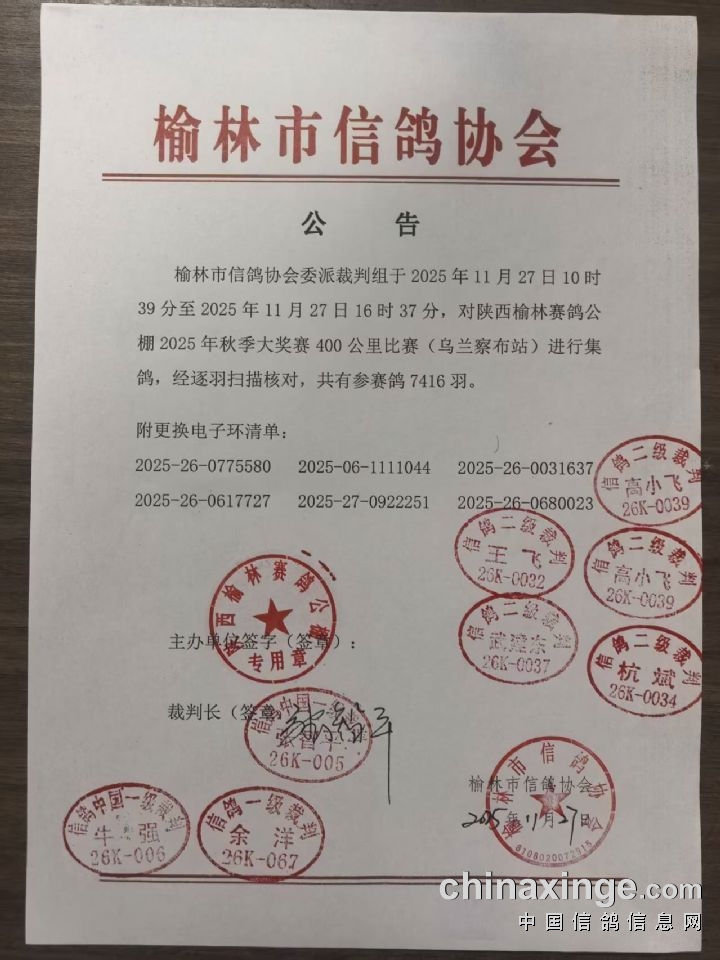 榆林市信鸽协会
公 告
榆林市信鸽协会委派裁判组于 2025 年 11 月 27 日 10 时
39 分至 2025 年 11 月 27 日 16 时 37 分，对陕西榆林赛鸽公
棚 2025 年秋季大奖赛 400 公里比赛（乌兰察布站）进行集
鸽，经逐羽扫描核对，共有参赛鸽 7416 羽。
附更换电子环清单：
2025-26-0775580 2025-06-1111044 2025-26-0031637
2025-26-0617727 2025-27-0922251 2025-26-0680023
信鸽二级裁判
高小飞
26K-0039
信鸽二级裁判
王飞
26K-0032
信鸽二级裁判
高小飞
26K-0039
信鸽二级裁判
武建东
26K-0037
信鸽二级裁判
杭斌
26K-0034
陕西榆林赛鸽公棚
专用章
主办单位签字（签章）：
裁判长（签章
信鸽中国一级裁判
26K-005
榆林市信鸽协会
2025年11月27日
榆林市信鸽协会
6108020072915
信鸽中国一级裁判
26K-006
信鸽一级裁判
余洋
26K-067
chinaxinge.com
中国信鸽信息网